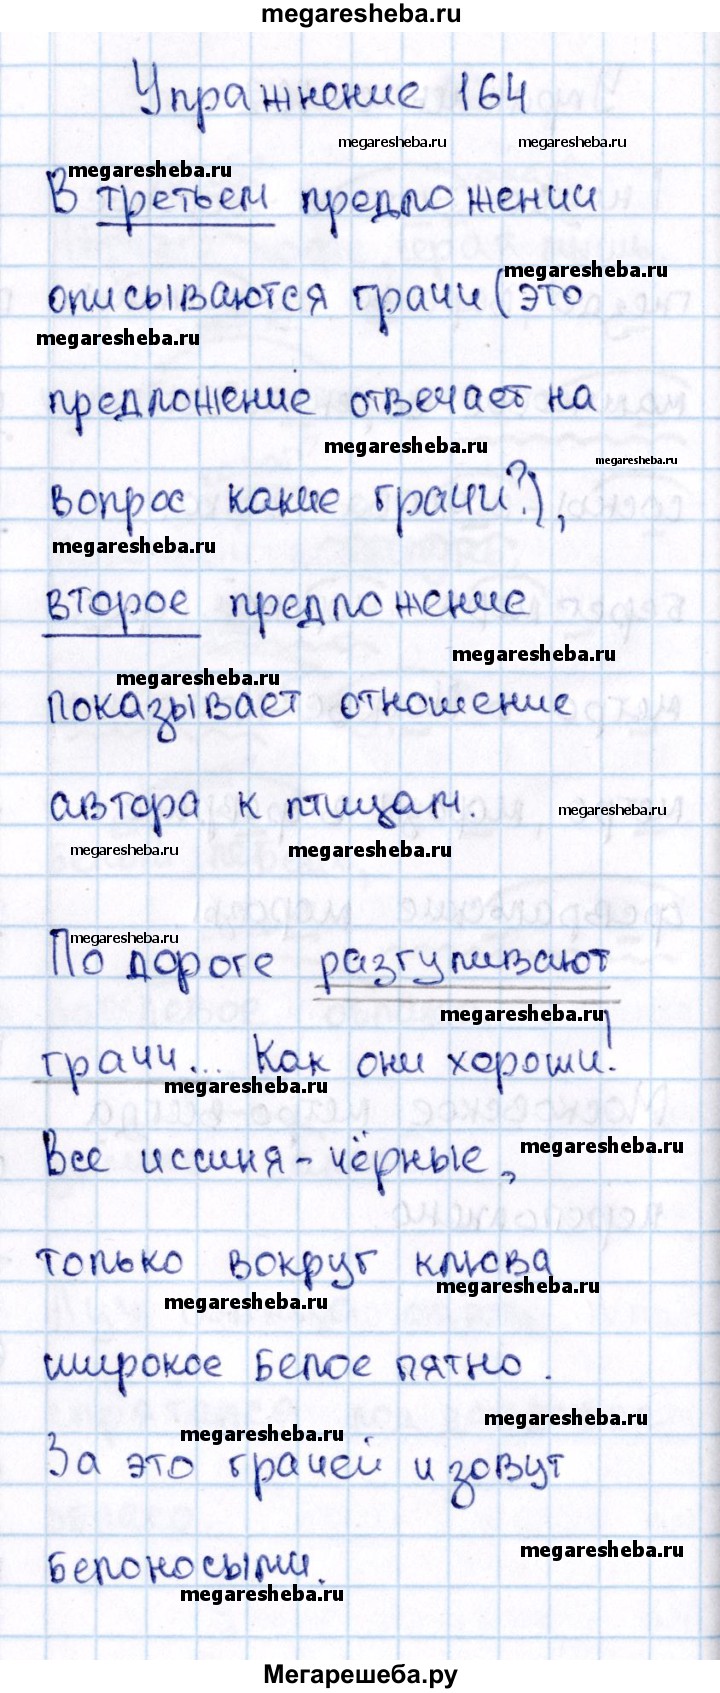 megaresheba.ru
Упражнение 164
megaresheba.ru megaresheba.ru
megaresheba.ru
В третьем предложении
megaresheba.ru
описываются грачи (это
megaresheba.ru
предложение отвечает на
megaresheba.ru megaresheba.ru
вопрос какие грачи?),
megaresheba.ru
второе предложение
megaresheba.ru
megaresheba.ru
показывает отношение
автора к птицам.
megaresheba.ru
megaresheba.ru megaresheba.ru
megaresheba.ru
По дороге разгуливают
megaresheba.ru
грачи... Как они хороши!
megaresheba.ru
Все иссиня-чёрные,
megaresheba.ru
только вокруг клюва
megaresheba.ru
megaresheba.ru
широкое белое пятно.
megaresheba.ru
megaresheba.ru
За это грачей и зовут
megaresheba.ru
белоносыми.
megaresheba.ru
Мегарешеба.ру